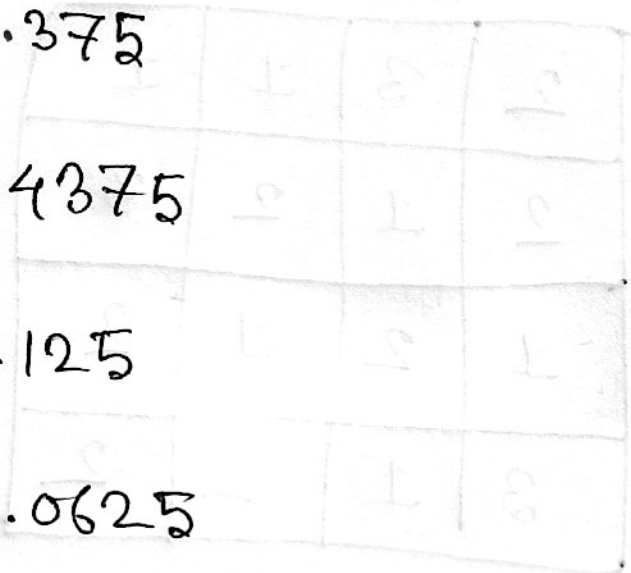 .375
4375
.125
.0625